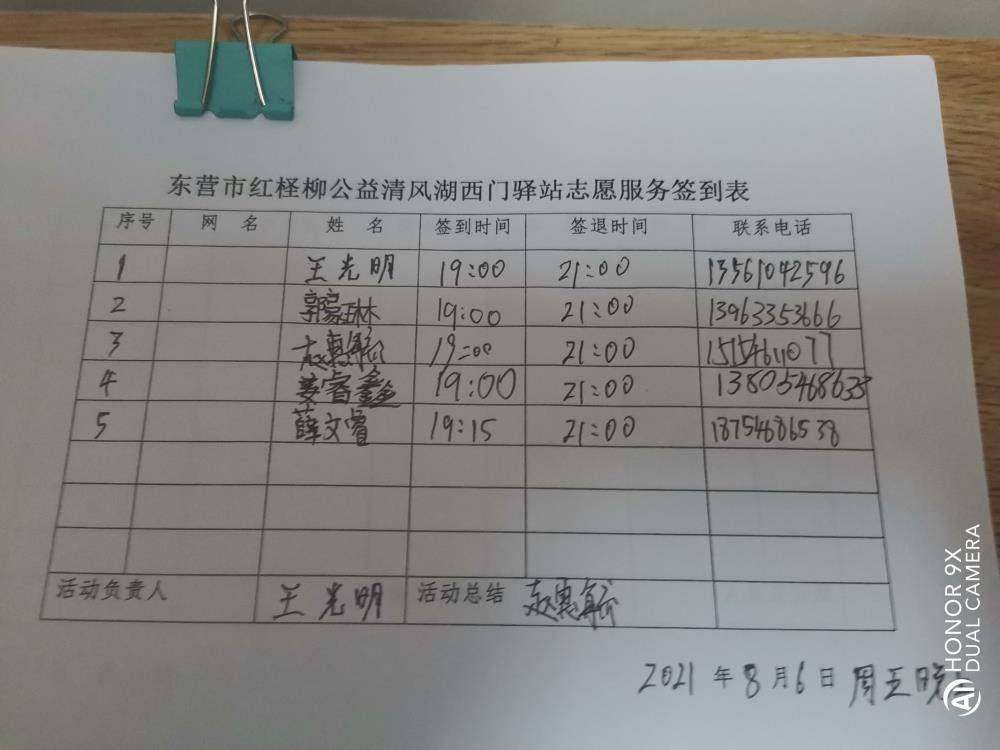 东营市红柽柳公益清风湖西门驿站志愿服务签到表
序号 网 名 姓 名 签到时间 签退时间 联系电话
1 王光明 19:00 21:00 13561042596
2 19:00 21:00 13963353666
3 19:00 21:00 15154611077
4 姜睿鑫 19:00 21:00 13805468633
5 薛文睿 19:15 21:00 18754686538
活动负责人 王光明 活动总结
2021年8月6日 周五晚
HONOR 9X
DUAL CAMERA
AI